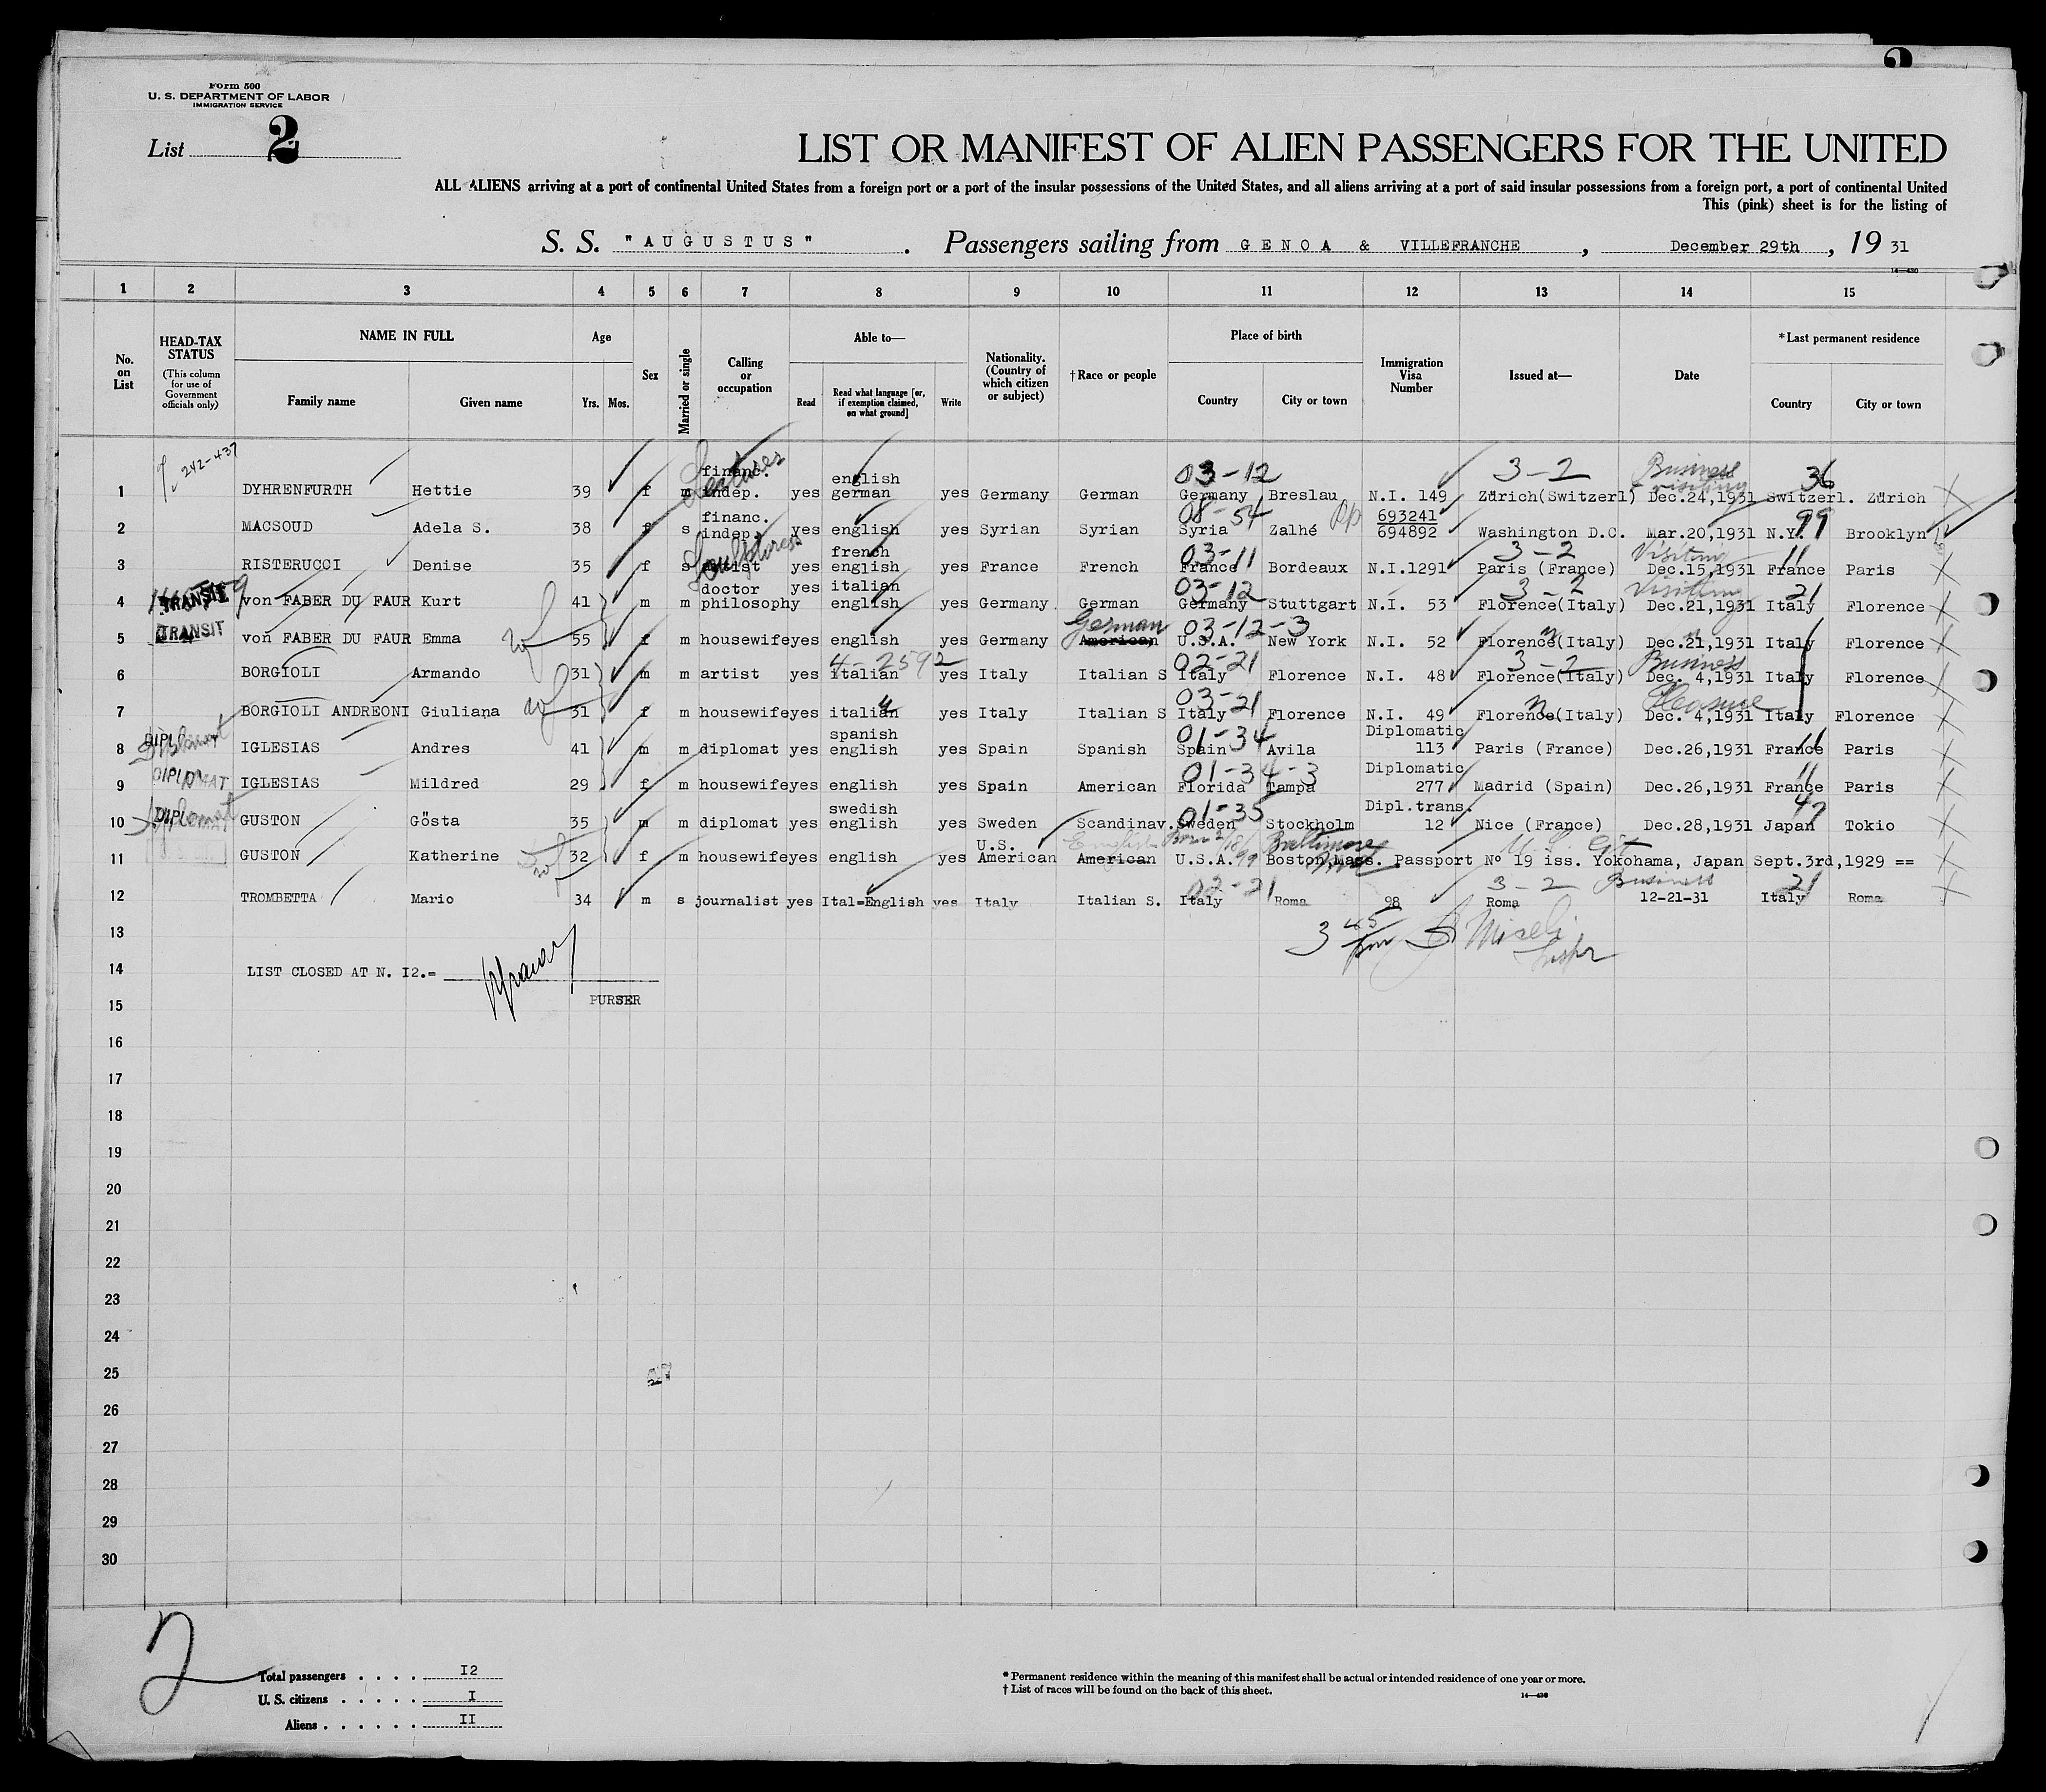 Form 500
U. S. DEPARTMENT OF LABOR
IMMIGRATION SERVICE
List 2
LIST OR MANIFEST OF ALIEN PASSENGERS FOR THE UNITED
ALL ALIENS arriving at a port of continental United States from a foreign port or a port of the insular possessions of the United States, and all aliens arriving at a port of said insular possessions from a foreign port, a port of continental United
This (pink) sheet is for the listing of
S. S. "AUGUSTUS". Passengers sailing from GENOA & VILLEFRANCHE, December 29th, 19 31
14-430
1 2 3 4 5 6 7 8 9 10 11 12 13 14 15
No. on List
HEAD-TAX STATUS (This column for use of Government officials only)
NAME IN FULL
Family name Given name
Age
Yrs. Mos.
Sex
Married or single
Calling or occupation
Able to—
Read Read what language [or, if exemption claimed, on what ground] Write
Nationality. (Country of which citizen or subject)
† Race or people
Place of birth
Country City or town
Immigration Visa Number
Issued at—
Date
* Last permanent residence
Country City or town
242-437 03-12 3-2 Business visiting 36
1 DYHRENFURTH Hettie 39 f m financ. indep. yes english german yes Germany German Germany Breslau N.I. 149 Zürich(Switzerl) Dec.24,1931 Switzerl. Zürich
08-54 99
2 MACSOUD Adela S. 38 f s financ. indep. yes english yes Syrian Syrian Syria Zalhé 693241 694892 Washington D.C. Mar.20,1931 N.Y. Brooklyn
Sculptress 03-11 3-2 Visiting 11
3 RISTERUCCI Denise 35 f s artist yes french english yes France French France Bordeaux N.I.1291 Paris (France) Dec.15,1931 France Paris
03-12 3-2 Visiting 21
4 TRANSIT von FABER DU FAUR Kurt 41 m m doctor philosophy yes italian english yes Germany German Germany Stuttgart N.I. 53 Florence(Italy) Dec.21,1931 Italy Florence
German 03-12-3
5 TRANSIT von FABER DU FAUR Emma 55 f m housewife yes english yes Germany American U.S.A. New York N.I. 52 Florence(Italy) Dec.21,1931 Italy Florence
4-2592 02-21 3-2 Business
6 BORGIOLI Armando 31 m m artist yes italian yes Italy Italian S Italy Florence N.I. 48 Florence(Italy) Dec. 4,1931 Italy Florence
03-21 Pleasure
7 BORGIOLI ANDREONI Giuliana 31 f m housewife yes italian yes Italy Italian S Italy Florence N.I. 49 Florence(Italy) Dec. 4,1931 Italy Florence
01-34 11
8 Diplomat IGLESIAS Andres 41 m m diplomat yes spanish english yes Spain Spanish Spain Avila Diplomatic 113 Paris (France) Dec.26,1931 France Paris
01-34-3 11
9 DIPLOMAT IGLESIAS Mildred 29 f m housewife yes english yes Spain American Florida Tampa Diplomatic 277 Madrid (Spain) Dec.26,1931 France Paris
01-35 47
10 Diplomat GUSTON Gösta 35 m m diplomat yes swedish english yes Sweden Scandinav. Sweden Stockholm Dipl.trans. 12 Nice (France) Dec.28,1931 Japan Tokio
English Baltimore U.S. Cit
11 GUSTON Katherine 32 f m housewife yes english yes U.S. American American U.S.A. 99 Boston,Mass. Passport Nº 19 iss. Yokohama, Japan Sept.3rd,1929 ==
02-21 3-2 Business 21
12 TROMBETTA Mario 34 m s journalist yes Ital=English yes Italy Italian S. Italy Roma 98 Roma 12-21-31 Italy Roma
13 3 45 pm Miceli Inspr
14 LIST CLOSED AT N. I2.=
15 PURSER
16
17
18
19
20
21
22
23
24
25
26
27
28
29
30
2
Total passengers . . . . I2
U. S. citizens . . . . . I
Aliens . . . . . . II
* Permanent residence within the meaning of this manifest shall be actual or intended residence of one year or more.
† List of races will be found on the back of this sheet.
14-430